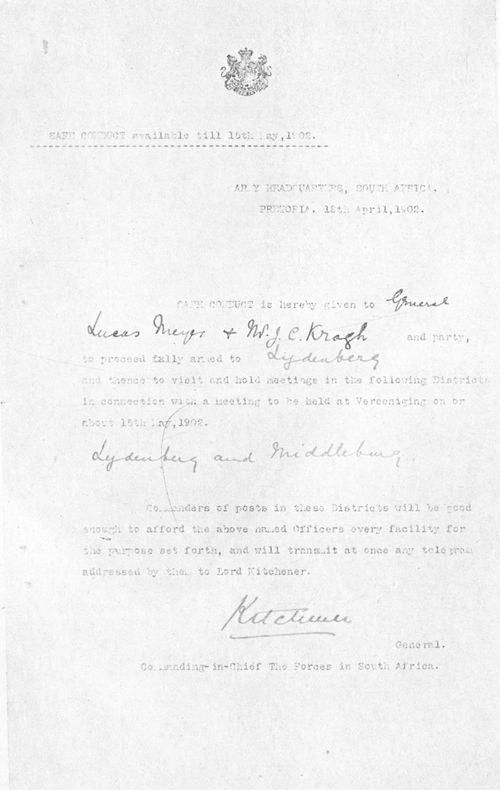 SAFE CONDUCT available till 15th May, 1902.
ARMY HEADQUARTERS, SOUTH AFRICA.
PRETORIA. 18th April, 1902.
SAFE CONDUCT is hereby given to General
Lucas Meyer & Mr. J. C. Kragh and party,
to proceed fully armed to Lydenberg
and thence to visit and hold meetings in the following Districts
in connection with a meeting to be held at Vereeniging on or
about 15th May, 1902.
Lydenberg and Middleburg.
Commanders of posts in these Districts will be good
enough to afford the above named Officers every facility for
the purpose set forth, and will transmit at once any telegram
addressed by them to Lord Kitchener.
Kitchener
General.
Commanding-in-Chief The Forces in South Africa.